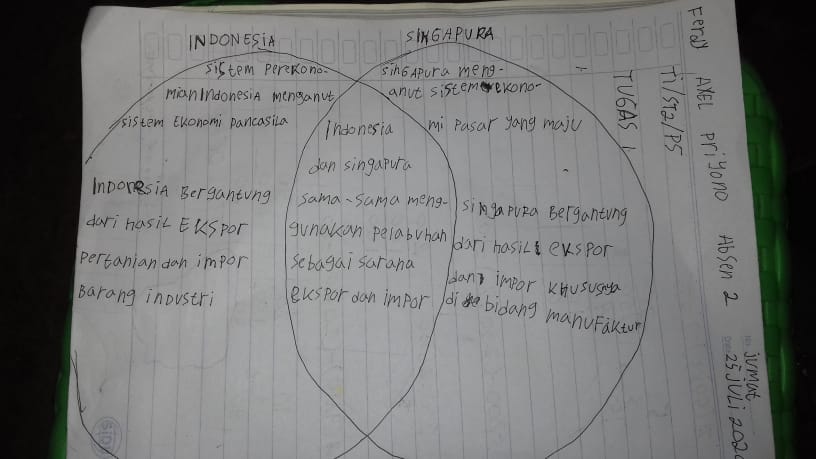 INDONESIA
sistem perekono-
mian Indonesia menganut
sistem Ekonomi pancasila
Indonesia Bergantung
dari hasil Ekspor
pertanian dan impor
Barang industri
Indonesia
dan singapura
sama-sama meng-
gunakan pelabuhan
sebagai sarana
ekspor dan impor
SINGAPURA
singapura meng-
anut sistem ekono-
mi pasar yang maju
singapura Bergantung
dari hasil ekspor
dan impor khususnya
di bidang manufaktur
Ferdy AXEL priyono Absen 2
TI/ST2/P5
TUGAS 1
No:
jumat
Date:
25 juli